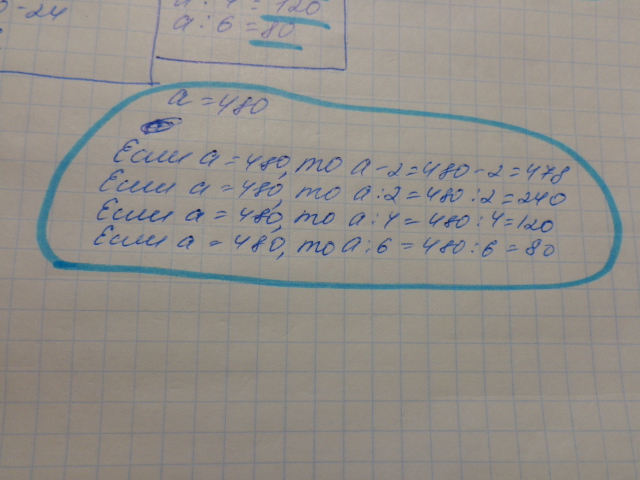 0-24
a : 4 = 120
a : 6 = 80
a = 480
Если a = 480, то a - 2 = 480 - 2 = 478
Если a = 480, то a : 2 = 480 : 2 = 240
Если a = 480, то a : 4 = 480 : 4 = 120
Если a = 480, то a : 6 = 480 : 6 = 80